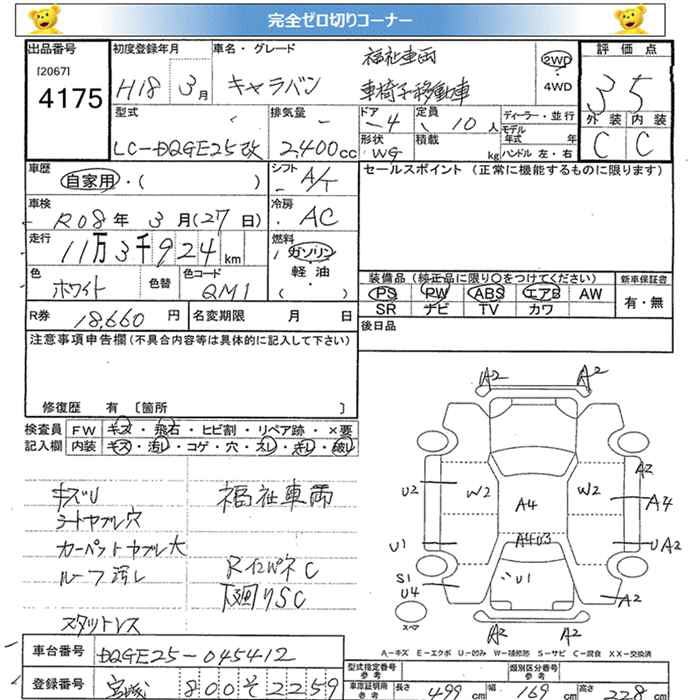 完全ゼロ切りコーナー
出品番号 初度登録年月 車名・グレード 福祉車両 2WD 評価点
[2067]
4175 H18 3月 キャラバン 車椅子移動車 4WD 35
型式 排気量 ドア 定員 ディーラー・並行 外装 内装
LC-DQGE25改 2,400cc 4 10人 モデル年式 年 C C
形状 WG 積載 kg ハンドル 左・右
車歴 シフト セールスポイント (正常に機能するものに限ります)
自家用・( ) A/T
車検 冷房
R08年 3月(27日) AC
走行 燃料
11万3千924km ガソリン
色 色替 色コード 軽油
ホワイト QM1 ( )
装備品 (純正品に限り○をつけてください) 新車保証書
PS PW ABS エアB AW 有・無
SR ナビ TV カワ
R券 18,660円 名変期限 月 日 後日品
注意事項申告欄(不具合内容等は具体的に記入して下さい)
修復歴 有 [箇所 ]
検査員 FW キズ・飛石・ヒビ割・リペア跡・×要
記入欄 内装 キズ・汚レ・コゲ・穴・スレ・キレ・破レ
キズU 福祉車両
シートヤブレ穴
カーペットヤブレ大
ルーフ汚レ RインパネC
下廻りSC
スタットレス
A2 A2
A2
U2 W2 A4 W2 A4
U1 A4U3 UA2
S1 U1
U4 A2
スペア A2 A2
A-キズ E-エクボ U-凹み W-補修跡 S-サビ C-腐食 XX-交換済
車台番号 DQGE25-045412
登録番号 宮城 800 そ 2259
型式指定番号 参考 類別区分番号 参考
車庫証明用 参考 長さ 499cm 幅 169cm 高さ 228cm